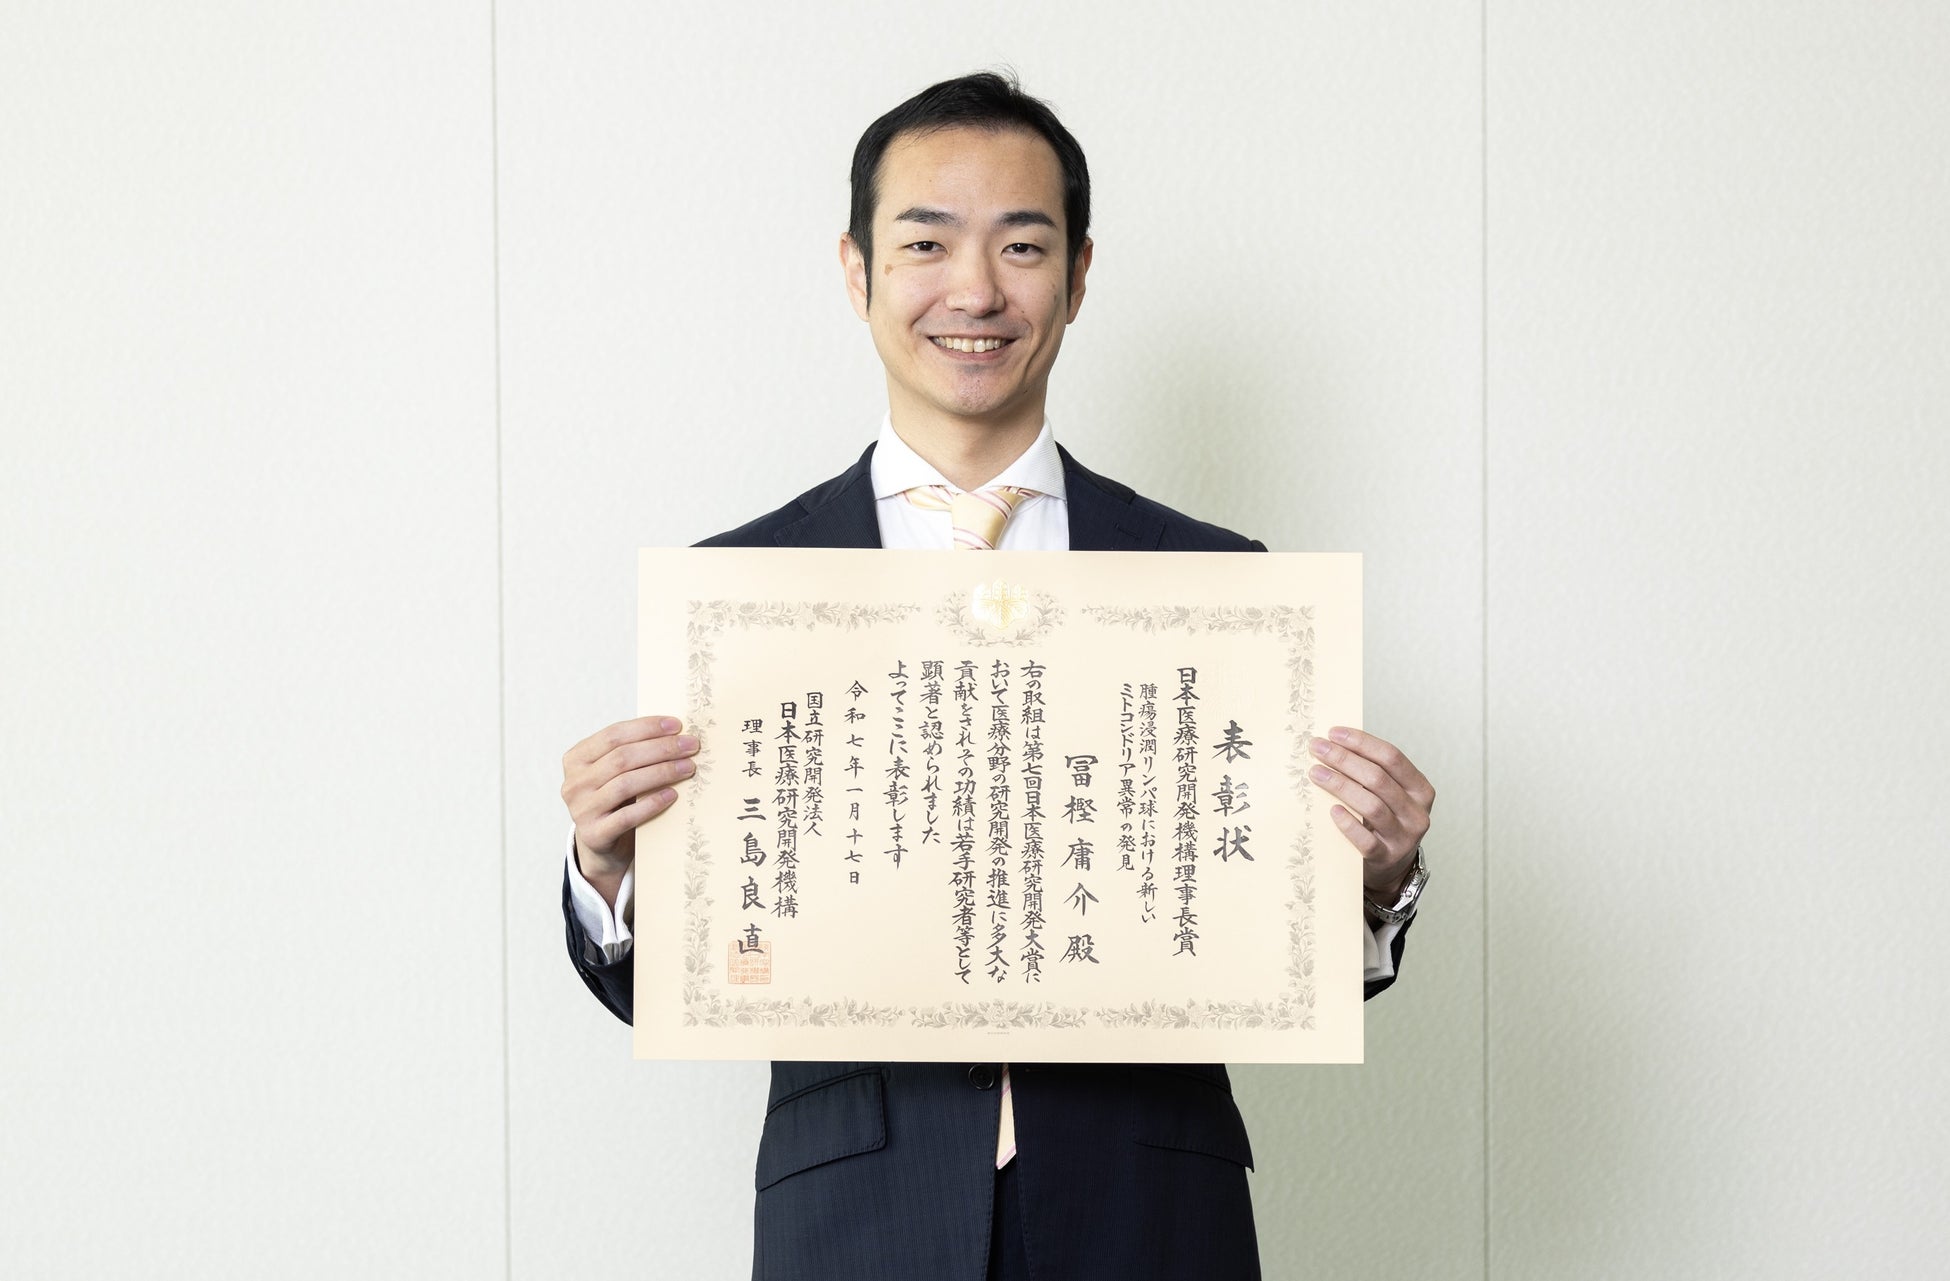 表彰状
日本医療研究開発機構理事長賞
腫瘍浸潤リンパ球における新しい
ミトコンドリア異常の発見
冨樫庸介殿
右の取組は第七回日本医療研究開発大賞に
おいて医療分野の研究開発の推進に多大な
貢献をされその功績は若手研究者等として
顕著と認められました
よってここに表彰します
令和七年一月十七日
国立研究開発法人
日本医療研究開発機構
理事長 三島良直